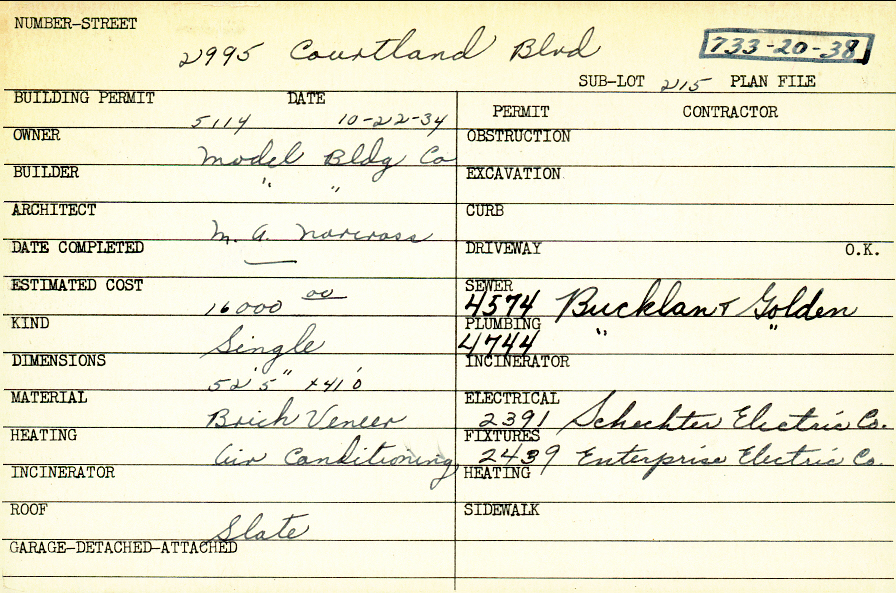 NUMBER-STREET
2995 Courtland Blvd
733-20-38
SUB-LOT 215 PLAN FILE
BUILDING PERMIT DATE
5114 10-22-34
PERMIT CONTRACTOR
OWNER
Model Bldg Co
OBSTRUCTION
BUILDER
" "
EXCAVATION
ARCHITECT
M. A. Norcross
CURB
DATE COMPLETED
—
DRIVEWAY O.K.
ESTIMATED COST
16000 00
SEWER
4574 Bucklan & Golden
KIND
Single
PLUMBING
4744 " "
DIMENSIONS
52'5" x 41'0
INCINERATOR
MATERIAL
Brick Veneer
ELECTRICAL
2391 Schechter Electric Co.
HEATING
Air Conditioning
FIXTURES
2439 Enterprise Electric Co.
INCINERATOR
HEATING
ROOF
Slate
SIDEWALK
GARAGE-DETACHED-ATTACHED